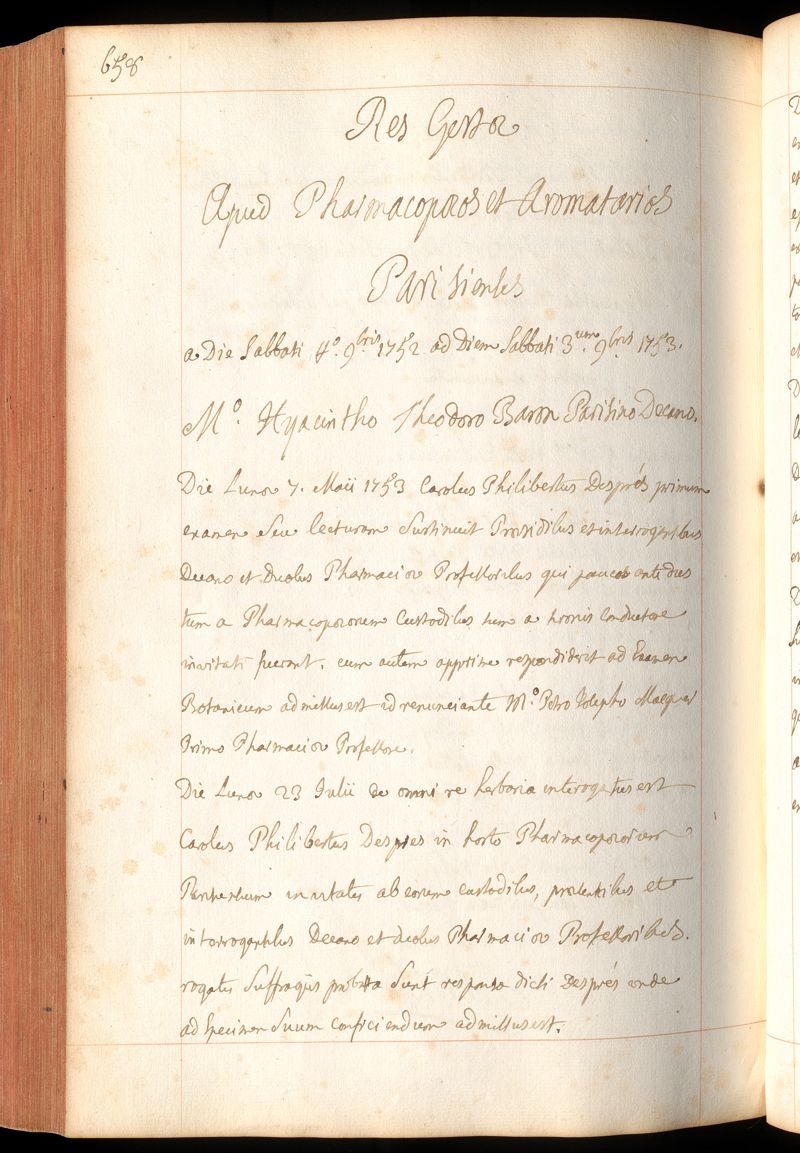 658
Res Gestæ
Apud Pharmacopæos et Aromatarios
Parisienses
a Die Sabbati 4°. 9bris 1752 ad Diem Sabbati 3um 9bris 1753.
M°. Hyacintho Theodoro Baron Parisino Decano.
Die Lunæ 7. Maii 1753 Carolus Philibertus Després primum
examen seu lecturam sustinuit Præsidibus et interrogantibus
Decano et Duobus Pharmaciæ Professoribus qui paucos ante dies
tum a Pharmacopæorum Custodibus tum a conductore
invitati fuerant. cum autem apprime respondiderit ad Examen
Botanicum admissus est id renunciante M°. Petro Josepho Macquer
Primo Pharmaciæ Professore.
Die Lunæ 23 Julii de omni re herbaria interrogatus est
Carolus Philibertus Despres in horto Pharmacopæorum
Parisiensium invitatis ab eorum custodibus, præsentibus et
interrogantibus Decano et duobus Pharmaciæ Professoribus.
rogatis Suffragiis probata Sunt responsa dicti Després unde
ad Specimen Suum conficiendum admissus est.